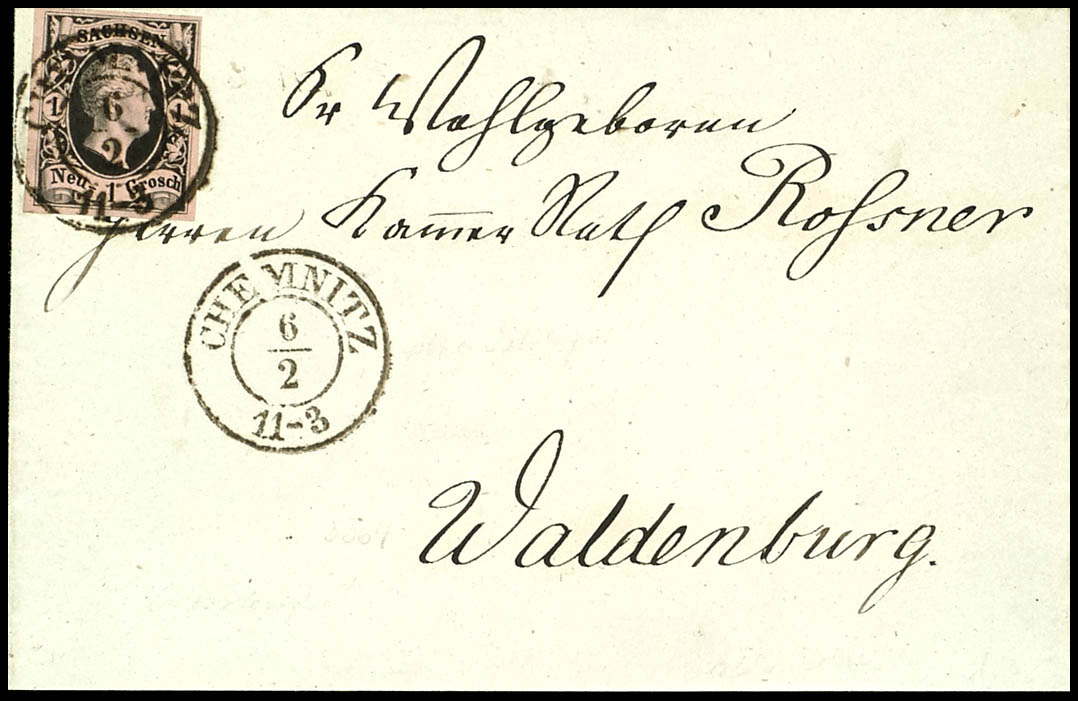 SACHSEN
1 1
Neu-1 Grosch
CHEMNITZ
6
2
11-3
Sr Wohlgeboren
Herren Kam̅er Rath Rossner
CHEMNITZ
6
2
11-3
Waldenburg.